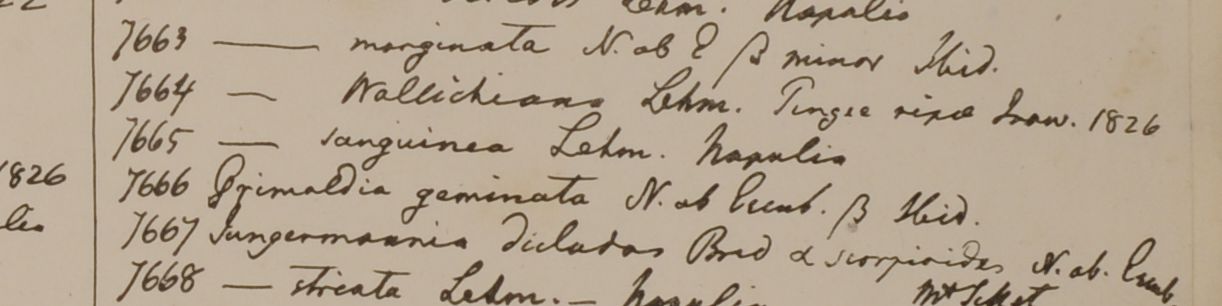 22 Lehm. Napalia
7663 —— marginata N. ab E β minor Ibid.
7664 — Wallichiana Lehm. Pingee ripæ Iraw. 1826
7665 —— sanguinea Lehm. Napalia
1826 7666 Grimaldia geminata N. ab Esenb. β Ibid.
lia 7667 Jungermannia diclados Brid α scorpioides N. ab. Esenb
7668 — striata Lehm. — Napalia Mt Sillet